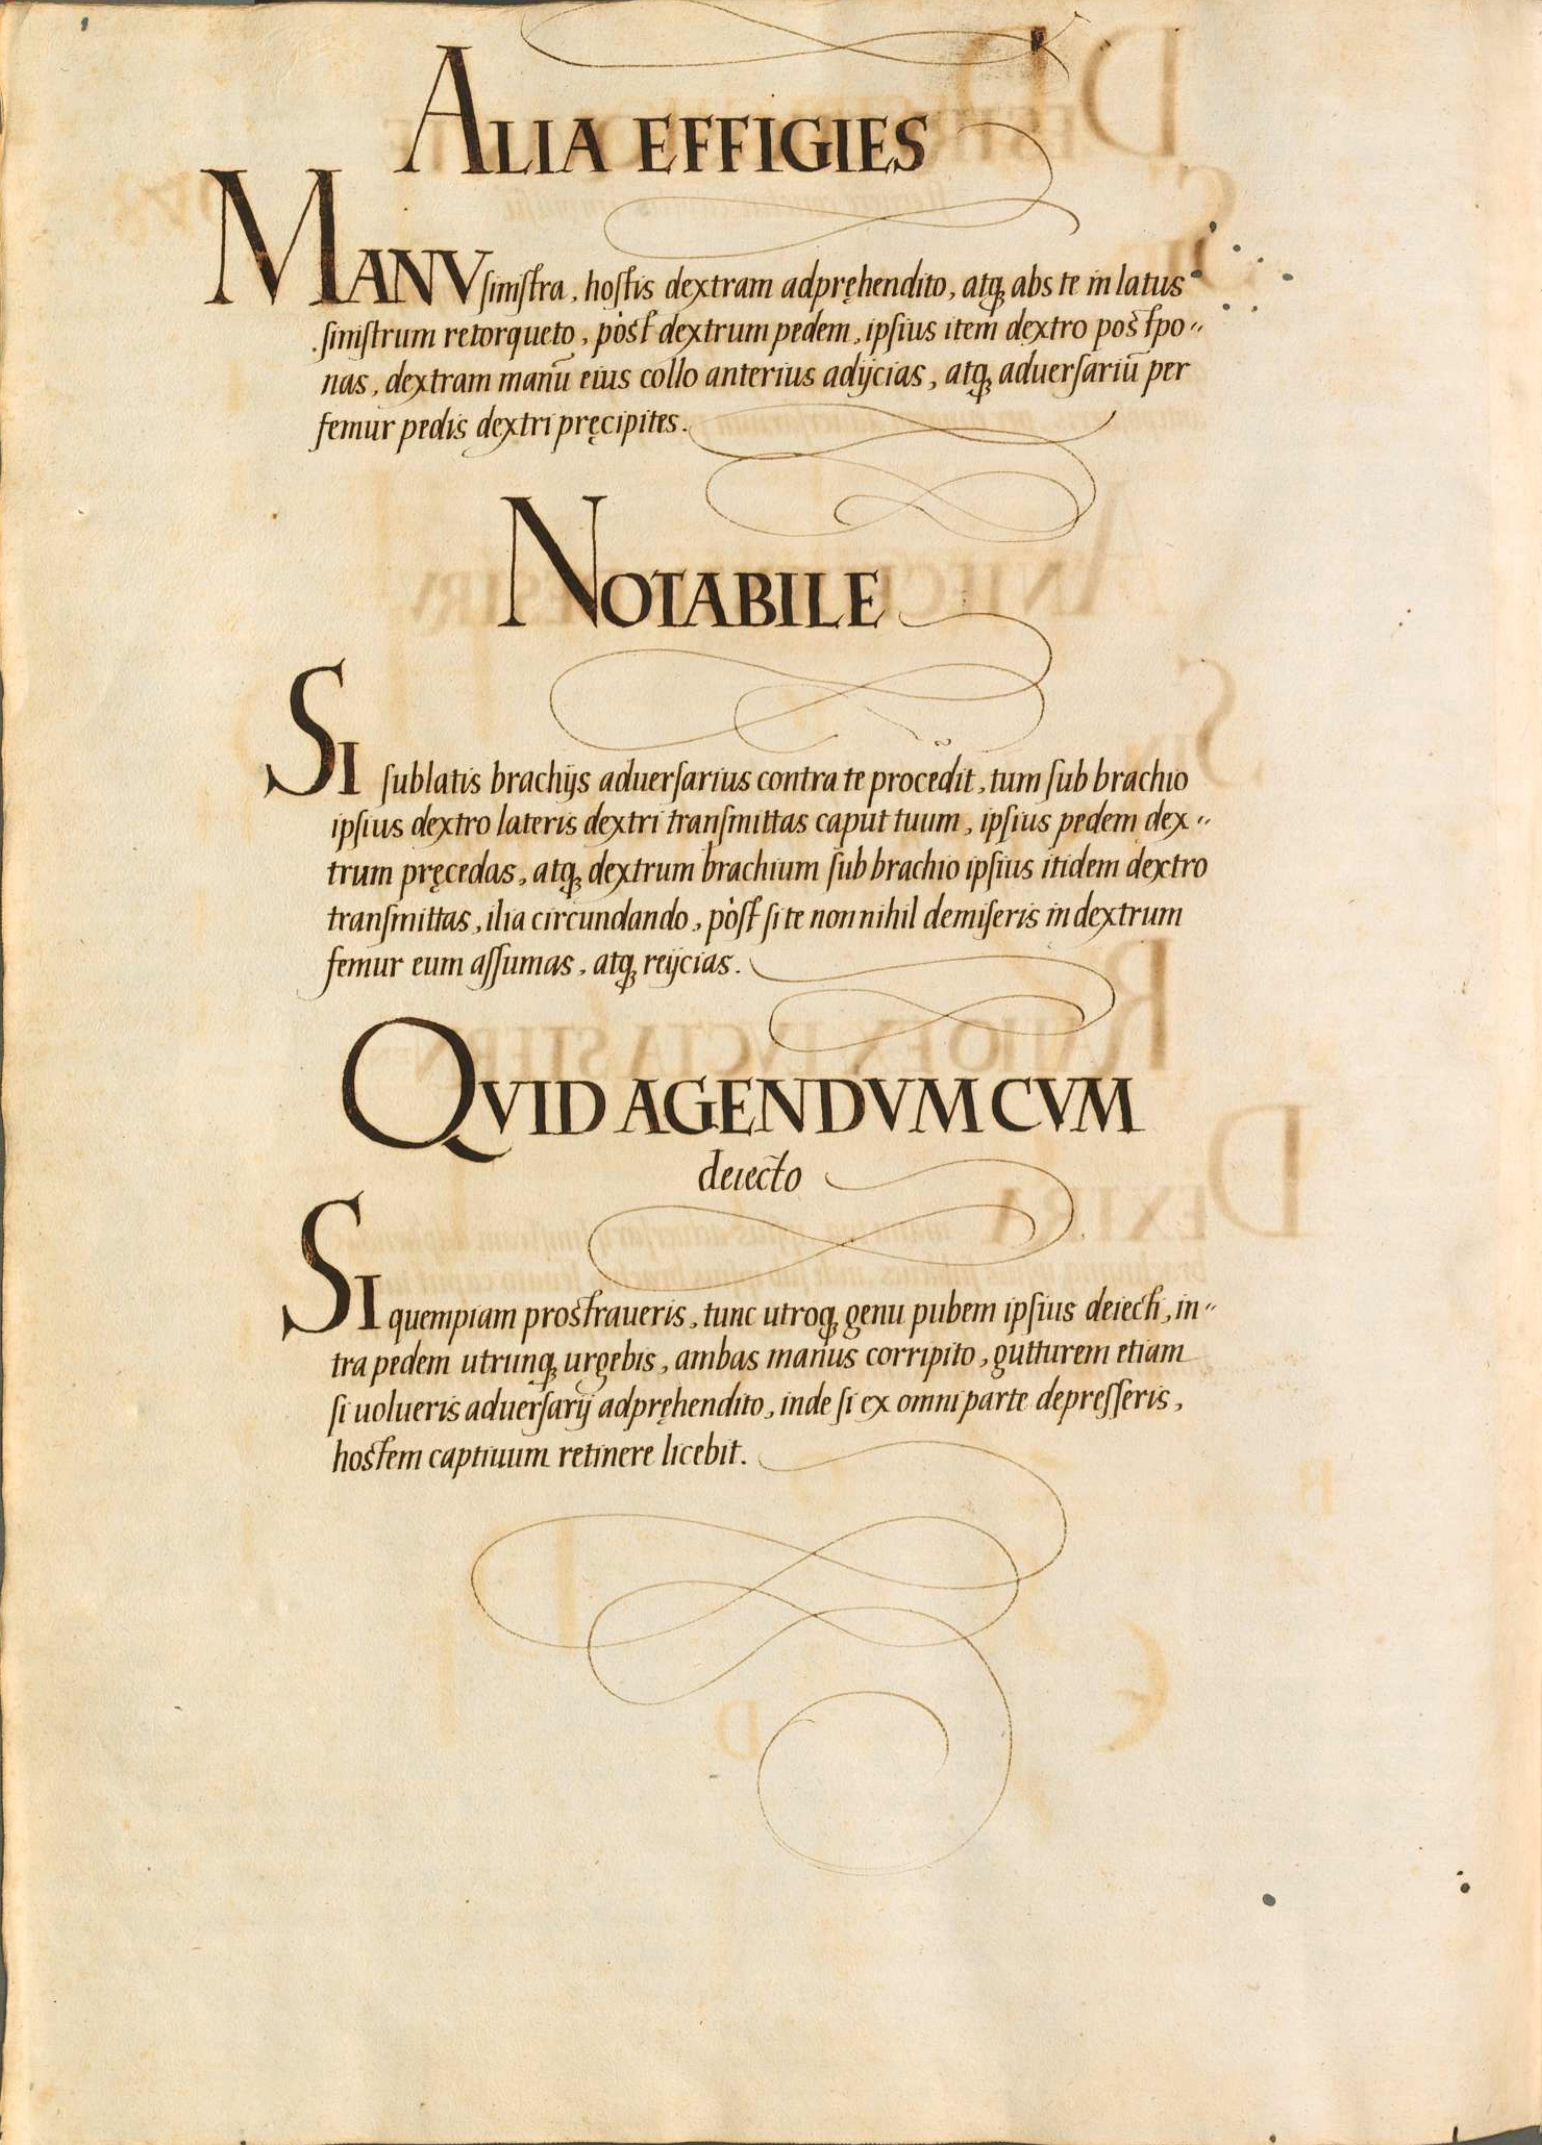 ALIA EFFIGIES
MANV siniſtra, hoſtis dextram adpręhendito, atq; abs te in latus
siniſtrum retorqueto, pòſt dextrum pedem, ipſius item dextro poſtpo〃
nas, dextram manū eius collo anterius adijcias, atq; aduerſariū per
femur pedis dextri pręcipites.
NOTABILE
SI ſublatis brachijs aduerſarius contra te procedit, tum ſub brachio
ipſius dextro lateris dextri tranſmittas caput tuum, ipſius pedem dex〃
trum pręcedas, atq; dextrum brachium ſub brachio ipſius itidem dextro
tranſmittas, ilia circundando, pòſt ſi te nonnihil demiſeris in dextrum
femur eum aſſumas, atq; reijcias.
QVID AGENDVM CVM
deiecto
SI quempiam proſtraueris, tunc utroq; genu pubem ipſius deiecti, in〃
tra pedem utrunq; urgebis, ambas manus corripito, gutturem etiam
ſi uolueris aduerſarij adpręhendito, inde ſi ex omni parte depreſſeris,
hoſtem captiuum retinere licebit.